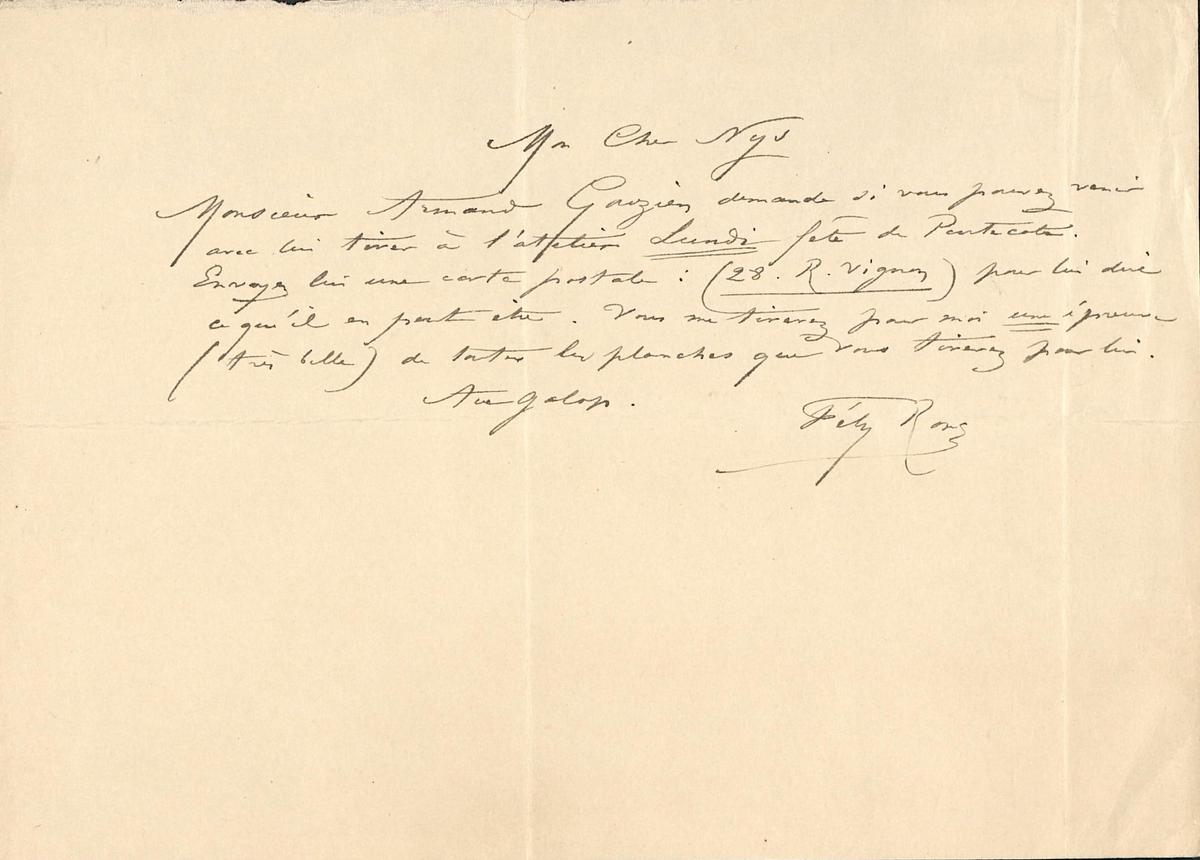 Mon Cher Nys
Monsieur Armand Gouzien demande si vous pouvez venir
avec lui tirer à l'atelier Lundi fête de Pentecote.
Envoyez lui une carte postale : (28. R. Vignon) pour lui dire
ce qu'il en peut être. Vous me tirerez pour moi une épreuve
(très belle) de toutes les planches que vous tirerez pour lui.
Au galop.
Fély Rops